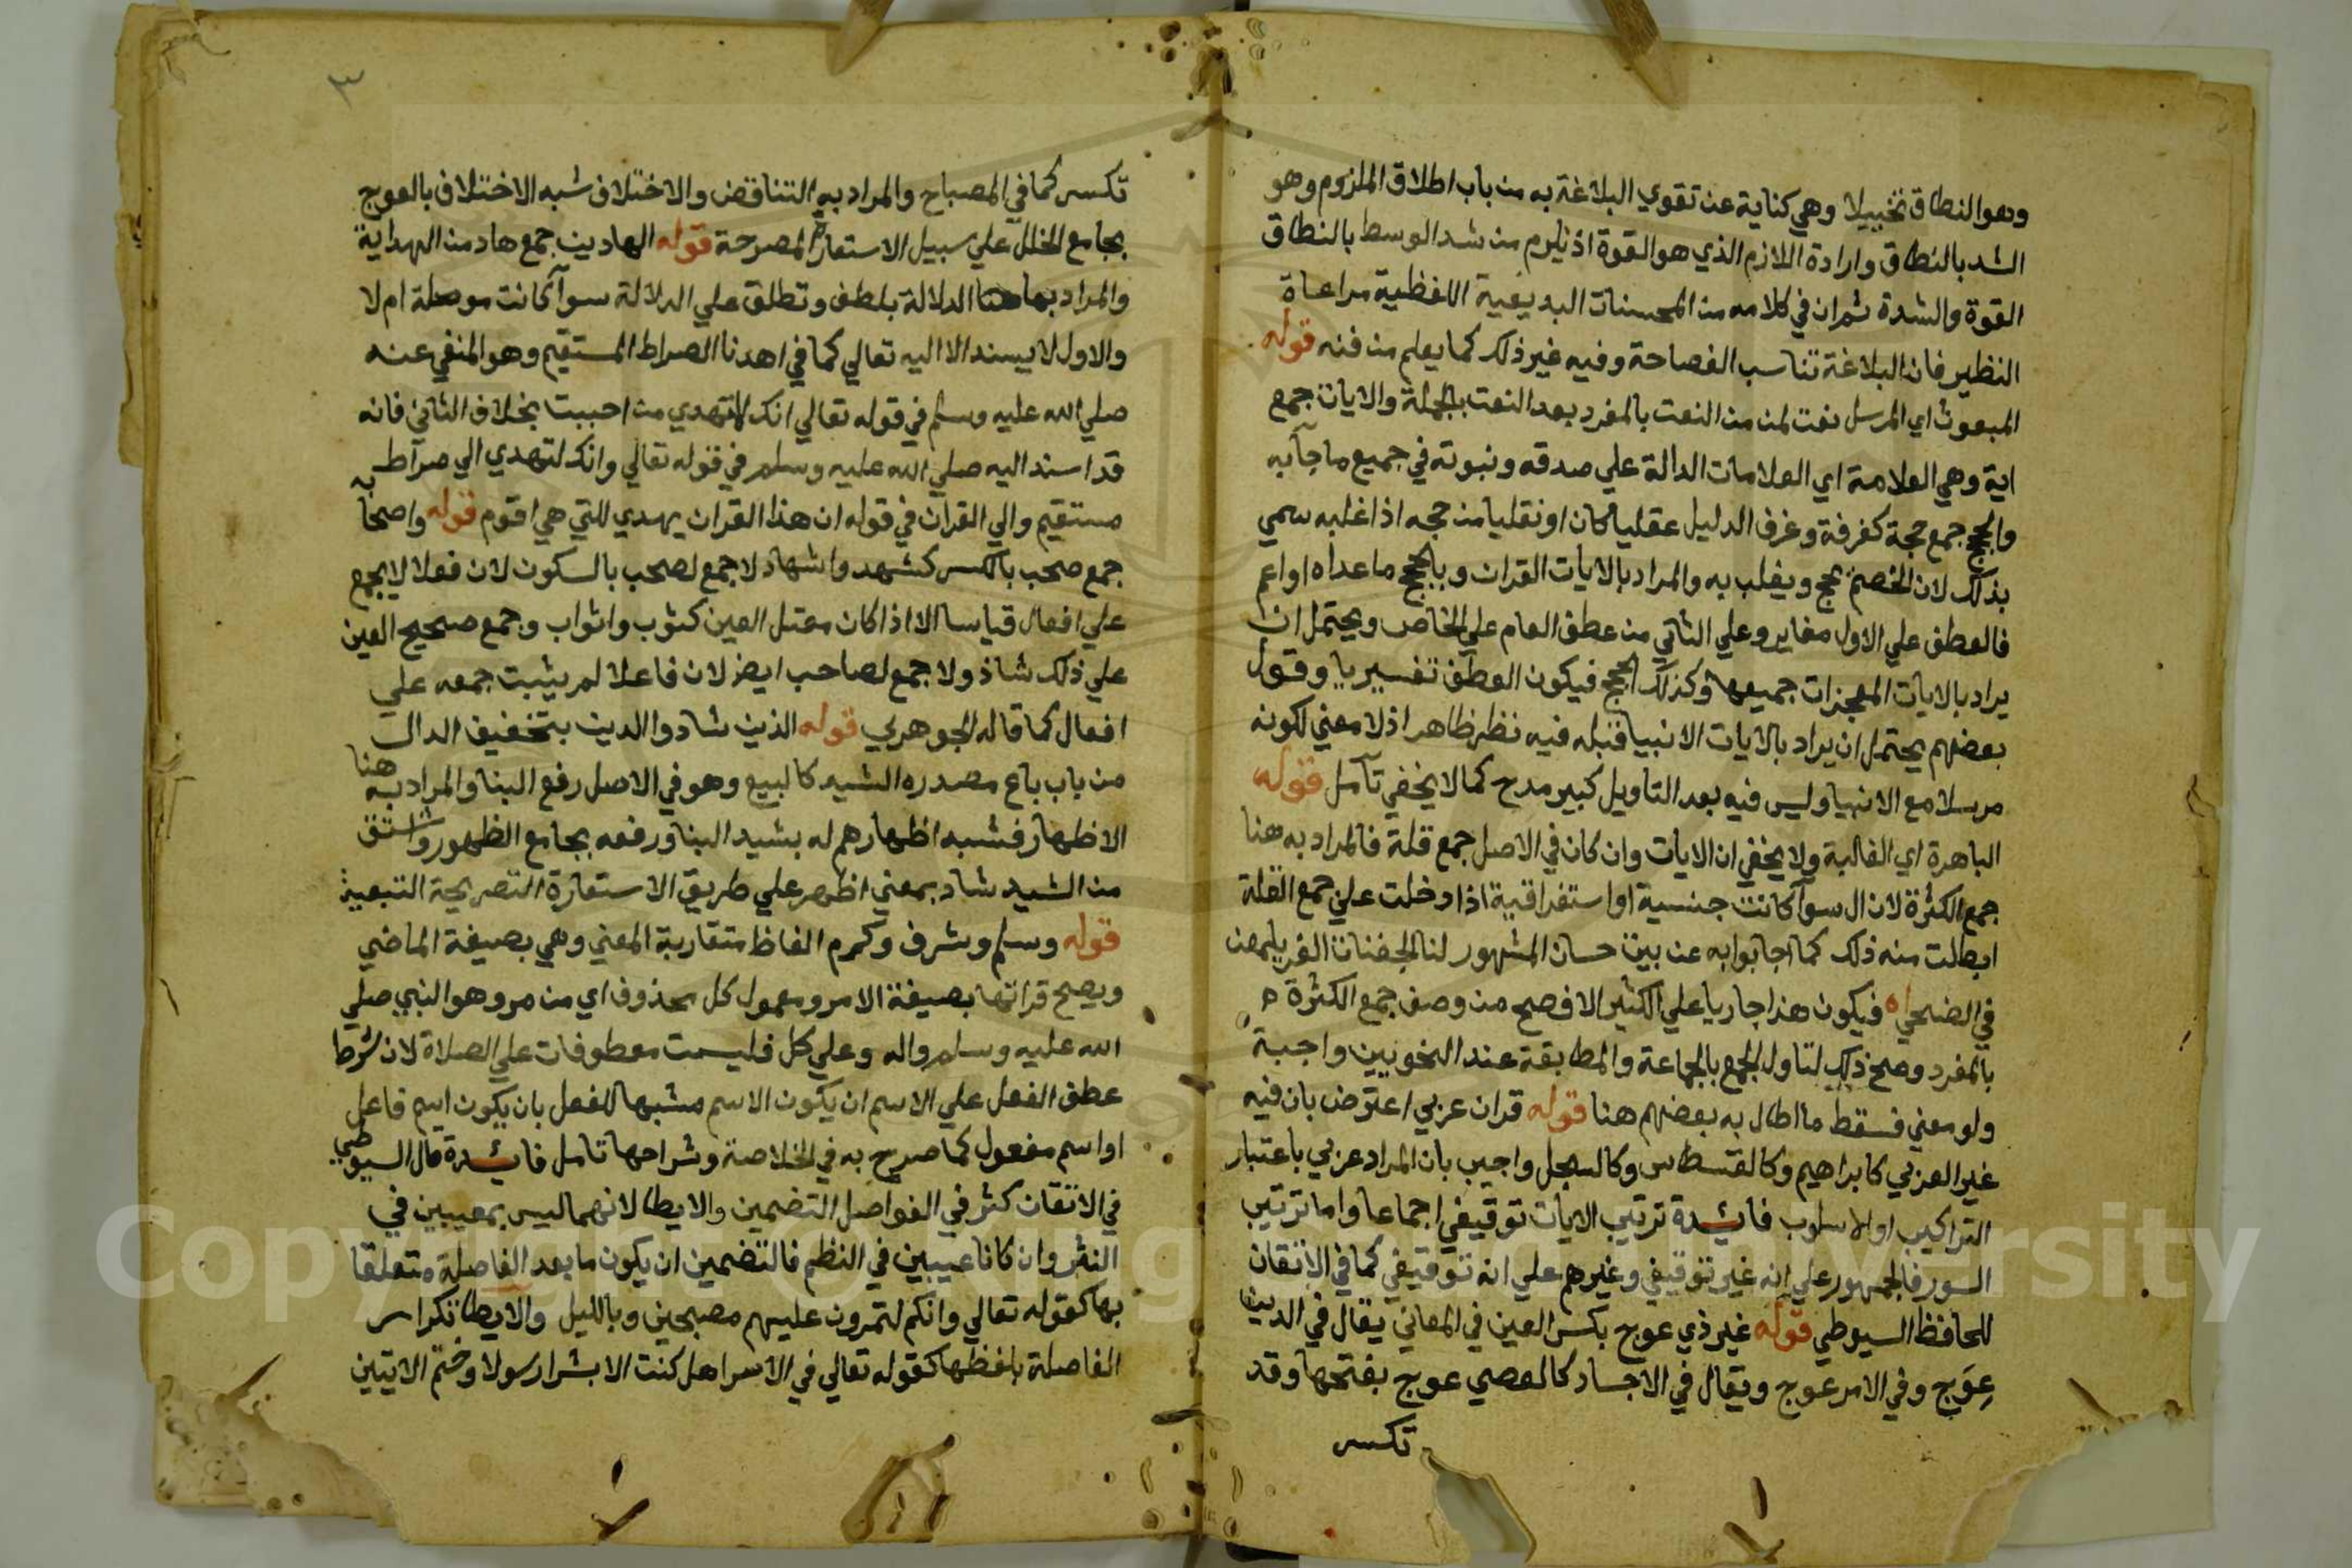 وهو النطاق تخييلا وهي كناية عن تقوي البلاغة به من باب اطلاق الملزوم وهو
الشد بالنطاق وارادة اللازم الذي هو القوة اذ يلزم من شد الوسط بالنطاق
القوة والشدة ثم ان في كلامه من المحسنات البديعية اللفظية مراعاة
النظير فان البلاغة تناسب الفصاحة وفيه غير ذلك كما يعلم من فنه قوله
المبعوث اي المرسل نعت لمن من النعت بالمفرد بعد النعت بالجملة والايات جمع
اية وهي العلامة اي العلامات الدالة علي صدقه ونبوته في جميع ما جآ به
والحجج جمع حجة كغرفة وغرف الدليل عقليا كان او نقليا من حجه اذا غلبه سمي
بذلك لان الخصم يحج ويغلب به والمراد بالايات القران وبالحجج ما عداه او اعم
فالعطف علي الاول مغاير وعلي الثاني من عطف العام علي الخاص ويحتمل ان
يراد بالايات المعجزات جميعها وكذلك الحجج فيكون العطف تفسيريا وقول
بعضهم يحتمل ان يراد بالايات الانبيا قبله فيه نظر ظاهر اذ لا معني لكونه
مرسلا مع الانبيا وليس فيه بعد التاويل كبير مدح كما لا يخفي تآمل قوله
الباهرة اي الغالبة ولا يخفي ان الايات وان كان في الاصل جمع قلة فالمراد به هنا
جمع الكثرة لان ال سوآ كانت جنسية او استغراقية اذا دخلت علي جمع القلة
ابطلت منه ذلك كما اجابوا به عن بيت حسان المشهور لنا الجفنات الغر يلمعن
في الضحي اه فيكون هذا جاريا علي الكثير الافصح من وصف جمع الكثرة
بالمفرد وصح ذلك لتاول الجمع بالجماعة والمطابقة عند النحويين واجبة
ولو معني فسقط ما اطال به بعضهم هنا قوله قران عربي اعترض بان فيه
غير العربي كابراهيم وكالقسطاس وكالسجل واجيب بان المراد عربي باعتبار
التراكيب او الاسلوب فائدة ترتيب الايات توقيفي اجماعا واما ترتيب
السور فالجمهور علي انه غير توقيفي وغيرهم علي انه توقيفي كما في الاتقان
للحافظ السيوطي قوله غير ذي عوج بكسر العين في المعاني يقال في الدين
عوج وفي الامر عوج ويقال في الاجساد كالعصي عوج بفتحها وقد
تكسر
٣
تكسر كما في المصباح والمراد به التناقض والاختلاف شبه الاختلاف بالعوج
بجامع الخلل علي سبيل الاستعارة المصرحة قوله الهادين جمع هاد من الهداية
والمراد بها هنا الدلالة بلطف وتطلق علي الدلالة سوآ كانت موصلة ام لا
والاول لا يسند الا اليه تعالي كما في اهدنا الصراط المستقيم وهو المنفي عنه
صلي الله عليه وسلم في قوله تعالي انك لا تهدي من احببت بخلاف الثاني فانه
قد اسند اليه صلي الله عليه وسلم في قوله تعالي وانك لتهدي الي صراط
مستقيم والي القران في قوله ان هذا القران يهدي للتي هي اقوم قوله واصحابه
جمع صحب بالكسر كشهد واشهاد لا جمع لصحب بالسكون لان فعلا لا يجمع
علي افعال قياسا الا اذا كان معتل العين كثوب واثواب وجمع صحيح العين
علي ذلك شاذ ولا جمع لصاحب ايضا لان فاعلا لم يثبت جمعه علي
افعال كما قاله الجوهري قوله الذين شادوا الدين بتخفيف الدال
من باب باع مصدره الشيد كالبيع وهو في الاصل رفع البنا والمراد به هنا
الاظهار فشبه اظهارهم له بشيد البنا ورفعه بجامع الظهور واشتق
من الشيد شاد بمعني اظهر علي طريق الاستعارة التصريحة التبعية
قوله وسلم وشرف وكرم الفاظ متقاربة المعني وهي بصيغة الماضي
ويصح قراتها بصيغة الامر ومعمول كل محذوف اي من مر وهو النبي صلي
الله عليه وسلم واله وعلي كل فليست معطوفات علي الصلاة لان شرط
عطف الفعل علي الاسم ان يكون الاسم مشبها للفعل بان يكون اسم فاعل
او اسم مفعول كما صرح به في الخلاصة وشراحها تامل فائدة قال السيوطي
في الاتقان كثر في الفواصل التضمين والايطا لانهما ليس بمعيبين في
النثر وان كانا عيبين في النظم فالتضمين ان يكون ما بعد الفاصلة متعلقا
بها كقوله تعالي وانكم لتمرون عليهم مصبحين وبالليل والايطا تكرار
الفاصلة بلفظها كقوله تعالي في الاسرا هل كنت الا بشرا رسولا وختم الايتين